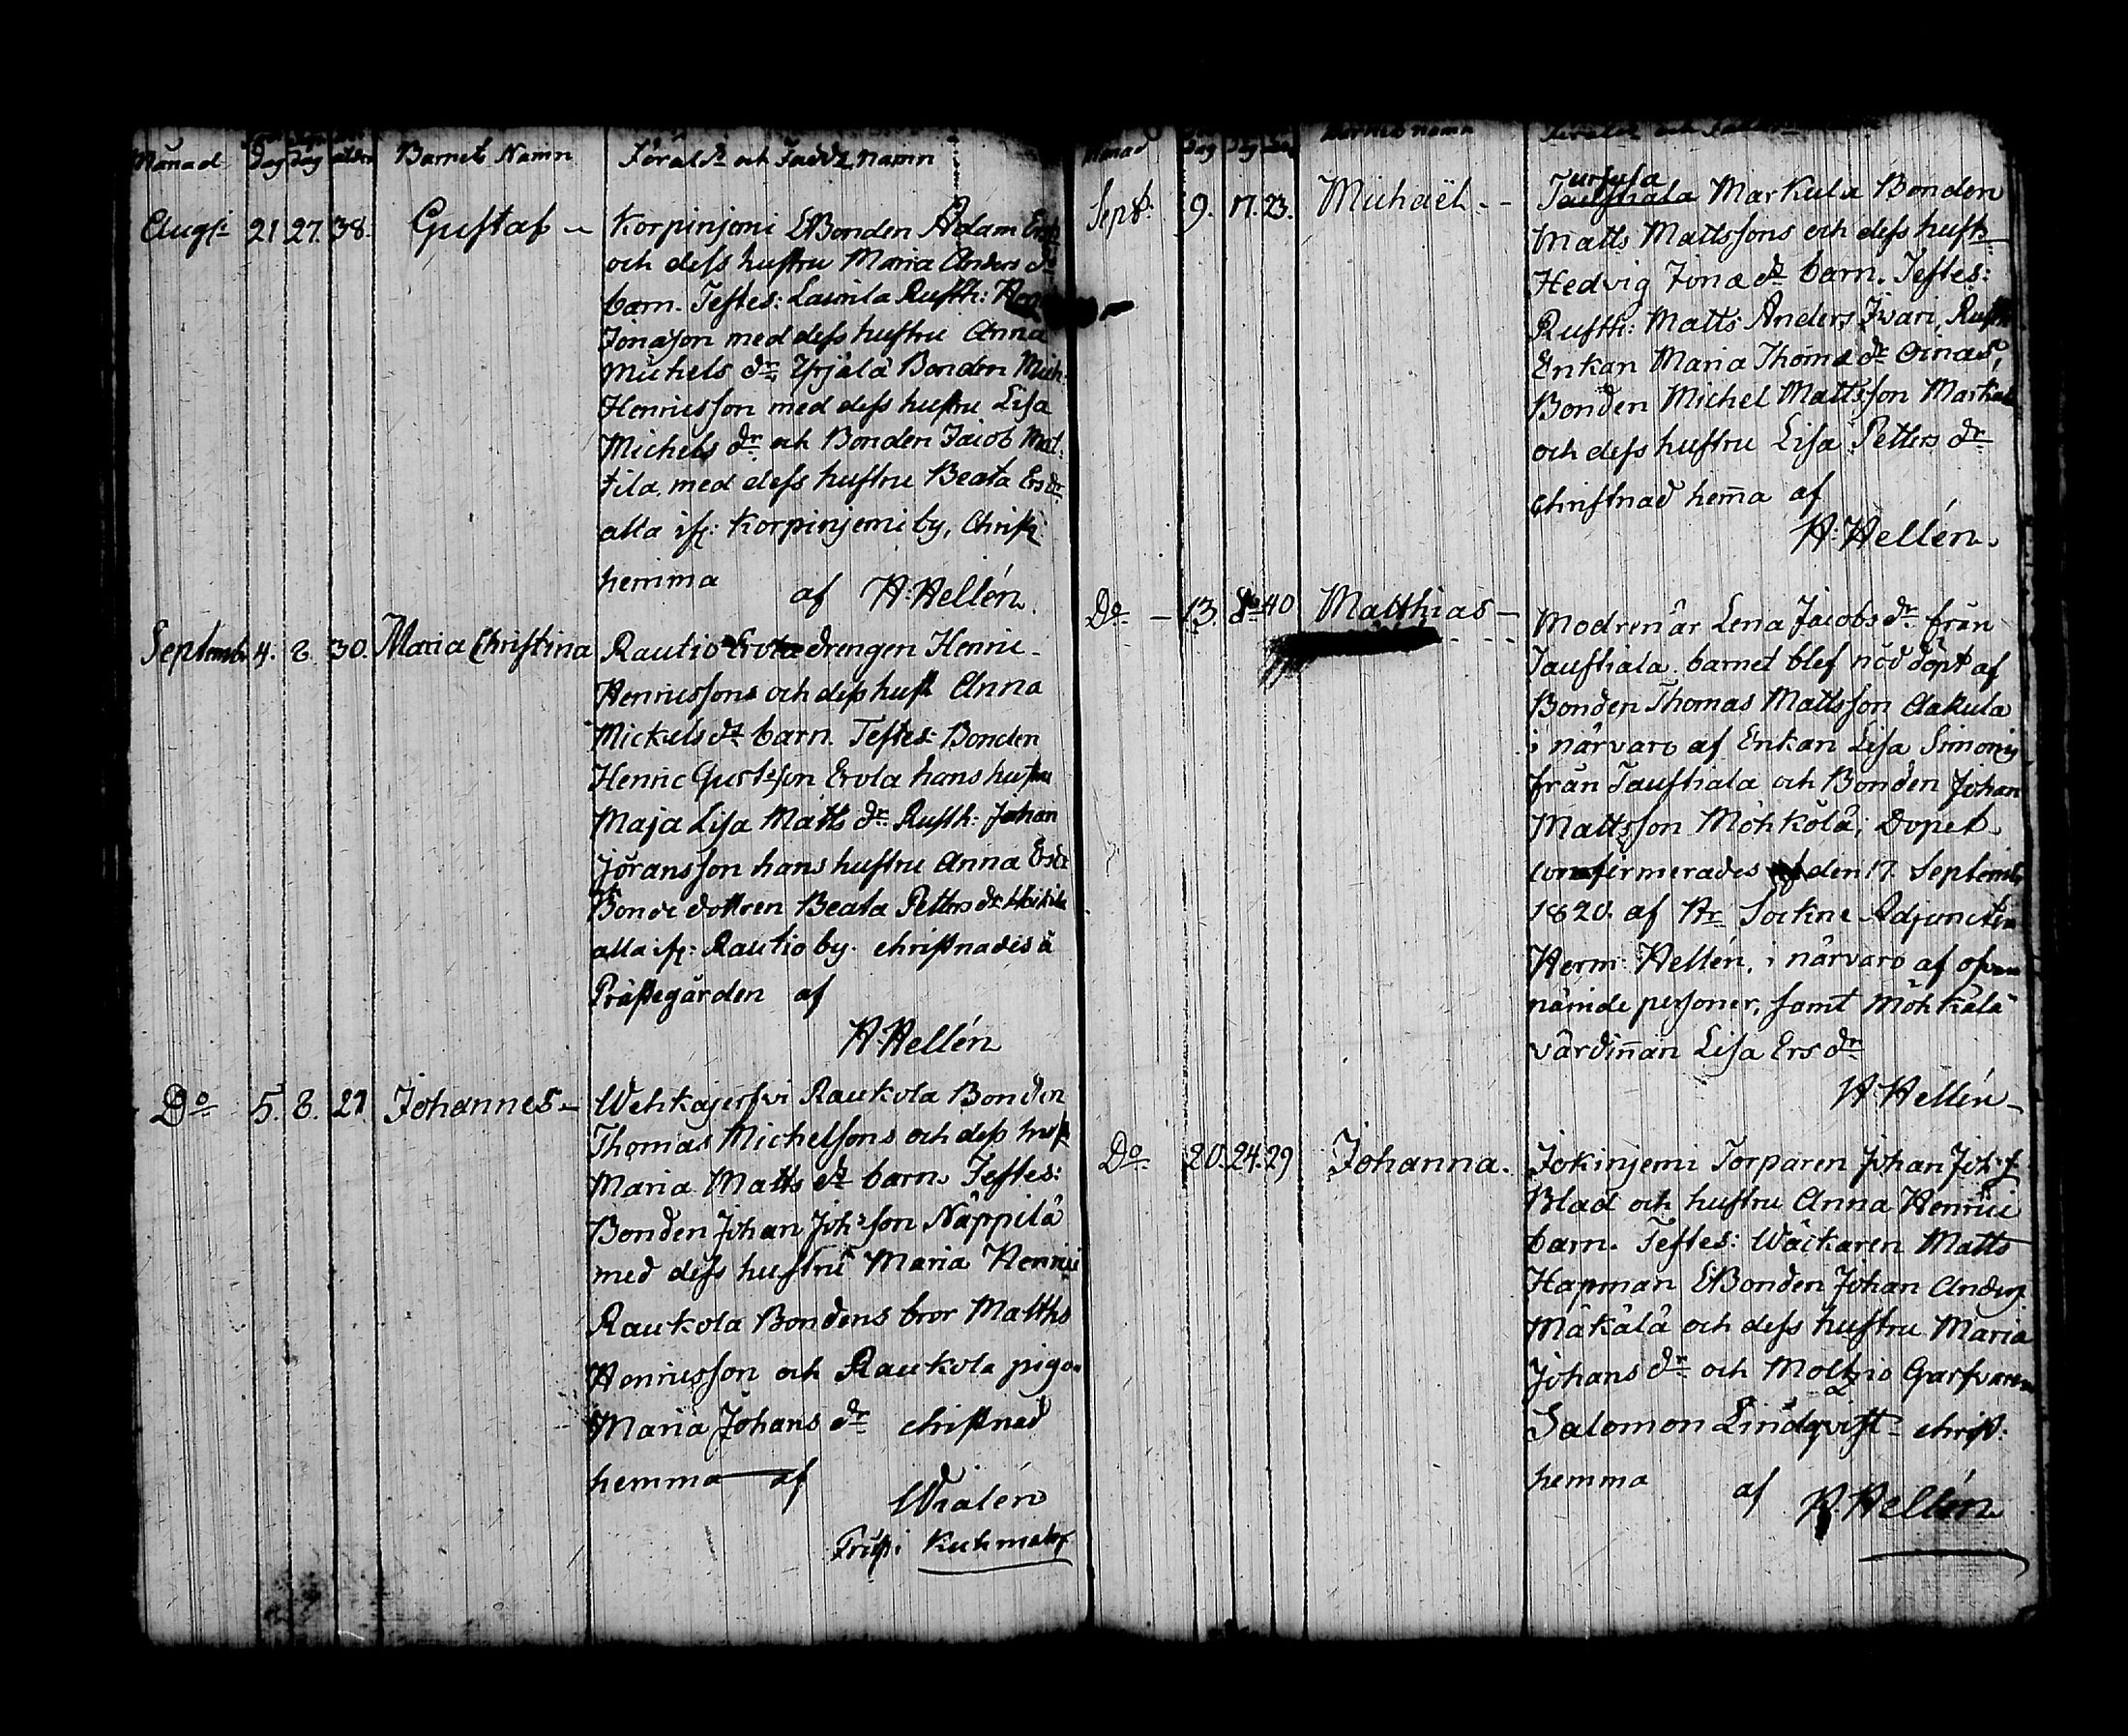 Månad Dag Dag ålder Barnets Namn Föräld:r och Fadd:r Namn
Aug:i 21. 27. 38. Gustaf Korpinjemi EBonden Adam Ers
och dess hustru Maria Anders d:r
barn. Testes: Laurila Rusth:
Jonæson med dess hustru Anna
Michels d:r, Yrjälä Bonden Mich:
Henricsson med dess hustru Lisa
Michels d:r och Bonden Jacob Mat-
tila, med dess hustru Beata Ers d:r
alla if: Korpinjemi by, Christ:
hemma af H: Hellén.
Septemb: 4. 8. 30. Maria Christina Rautio Erola drengen Henric
Henricssons och dess hust Anna
Mickels d:r barn. Testes: Bonden
Henric Gustafson Erola hans hustru
Maja Lisa Matts d:r Rusth: Johan
Jöransson hans hustru Anna Ersd:r
Bonde dottren Beata Petters d:r
alla if: Rautio by. christnades å
Prästegården af
H. Hellén
D:o 5. 8. 27 Johannes Wehkajerfwi Raukola Bonden
Thomas Michelsons och dess hust
Maria Matts d:r barn. Testes:
Bonden Johan Joh:son Näppilä
med dess hustru Maria Henrici
Raukola Bondens bror Matths
Henricsson och Raukola pigan
Maria Johans d:r christnad
hemma af
Wialén
Kuhmalax
Månad Dag Dag Barnets namn Föräld: och Fadd:
Sept: 9. 17. 23. Michaël Ursula
Taustiala Markula Bonden
Matts Mattssons och dess hust:
Hedvig Jonæ d:r barn. Testes:
Rusth: Matts Anders Iwari, Rusth:
Enkan Maria Thomæ d:r Oinas,
Bonden Michel Mattsson Markula
och dess hustru Lisa Petters d:r
christnad hem̄a af
H: Hellén.
D:o 13. d:o 40 Matthias Modren är Lena Jacobs d:r från
Taustiala. barnet blef nöd döpt af
Bonden Thomas Mattsson Aakula
i närvaro af Enkan Lisa Simonis
från Taustiala och Bonden Johan
Mattsson Möhkölä; Dopet
confirmerades den 17 Septemb:
1820. af Hr Sockne Adjuncten
Herm: Hellén, i närvaro af ofvan
nämde personer, samt Möhkälä
värdin̄an Lisa Ers d:r
H Hellén
D:o 20. 24. 29 Johanna. Jokinjemi Torparen Johan Joh:s:
Blad och hustru Anna Henrici
barn. Testes: Wäckaren Matts
Hapman EBonden Johan Anders
Mäkälä och dess hustru Maria
Johans d:r och Moltzio Garfvaren
Salomon Lindqvist christ:
hemma af H. Hellén